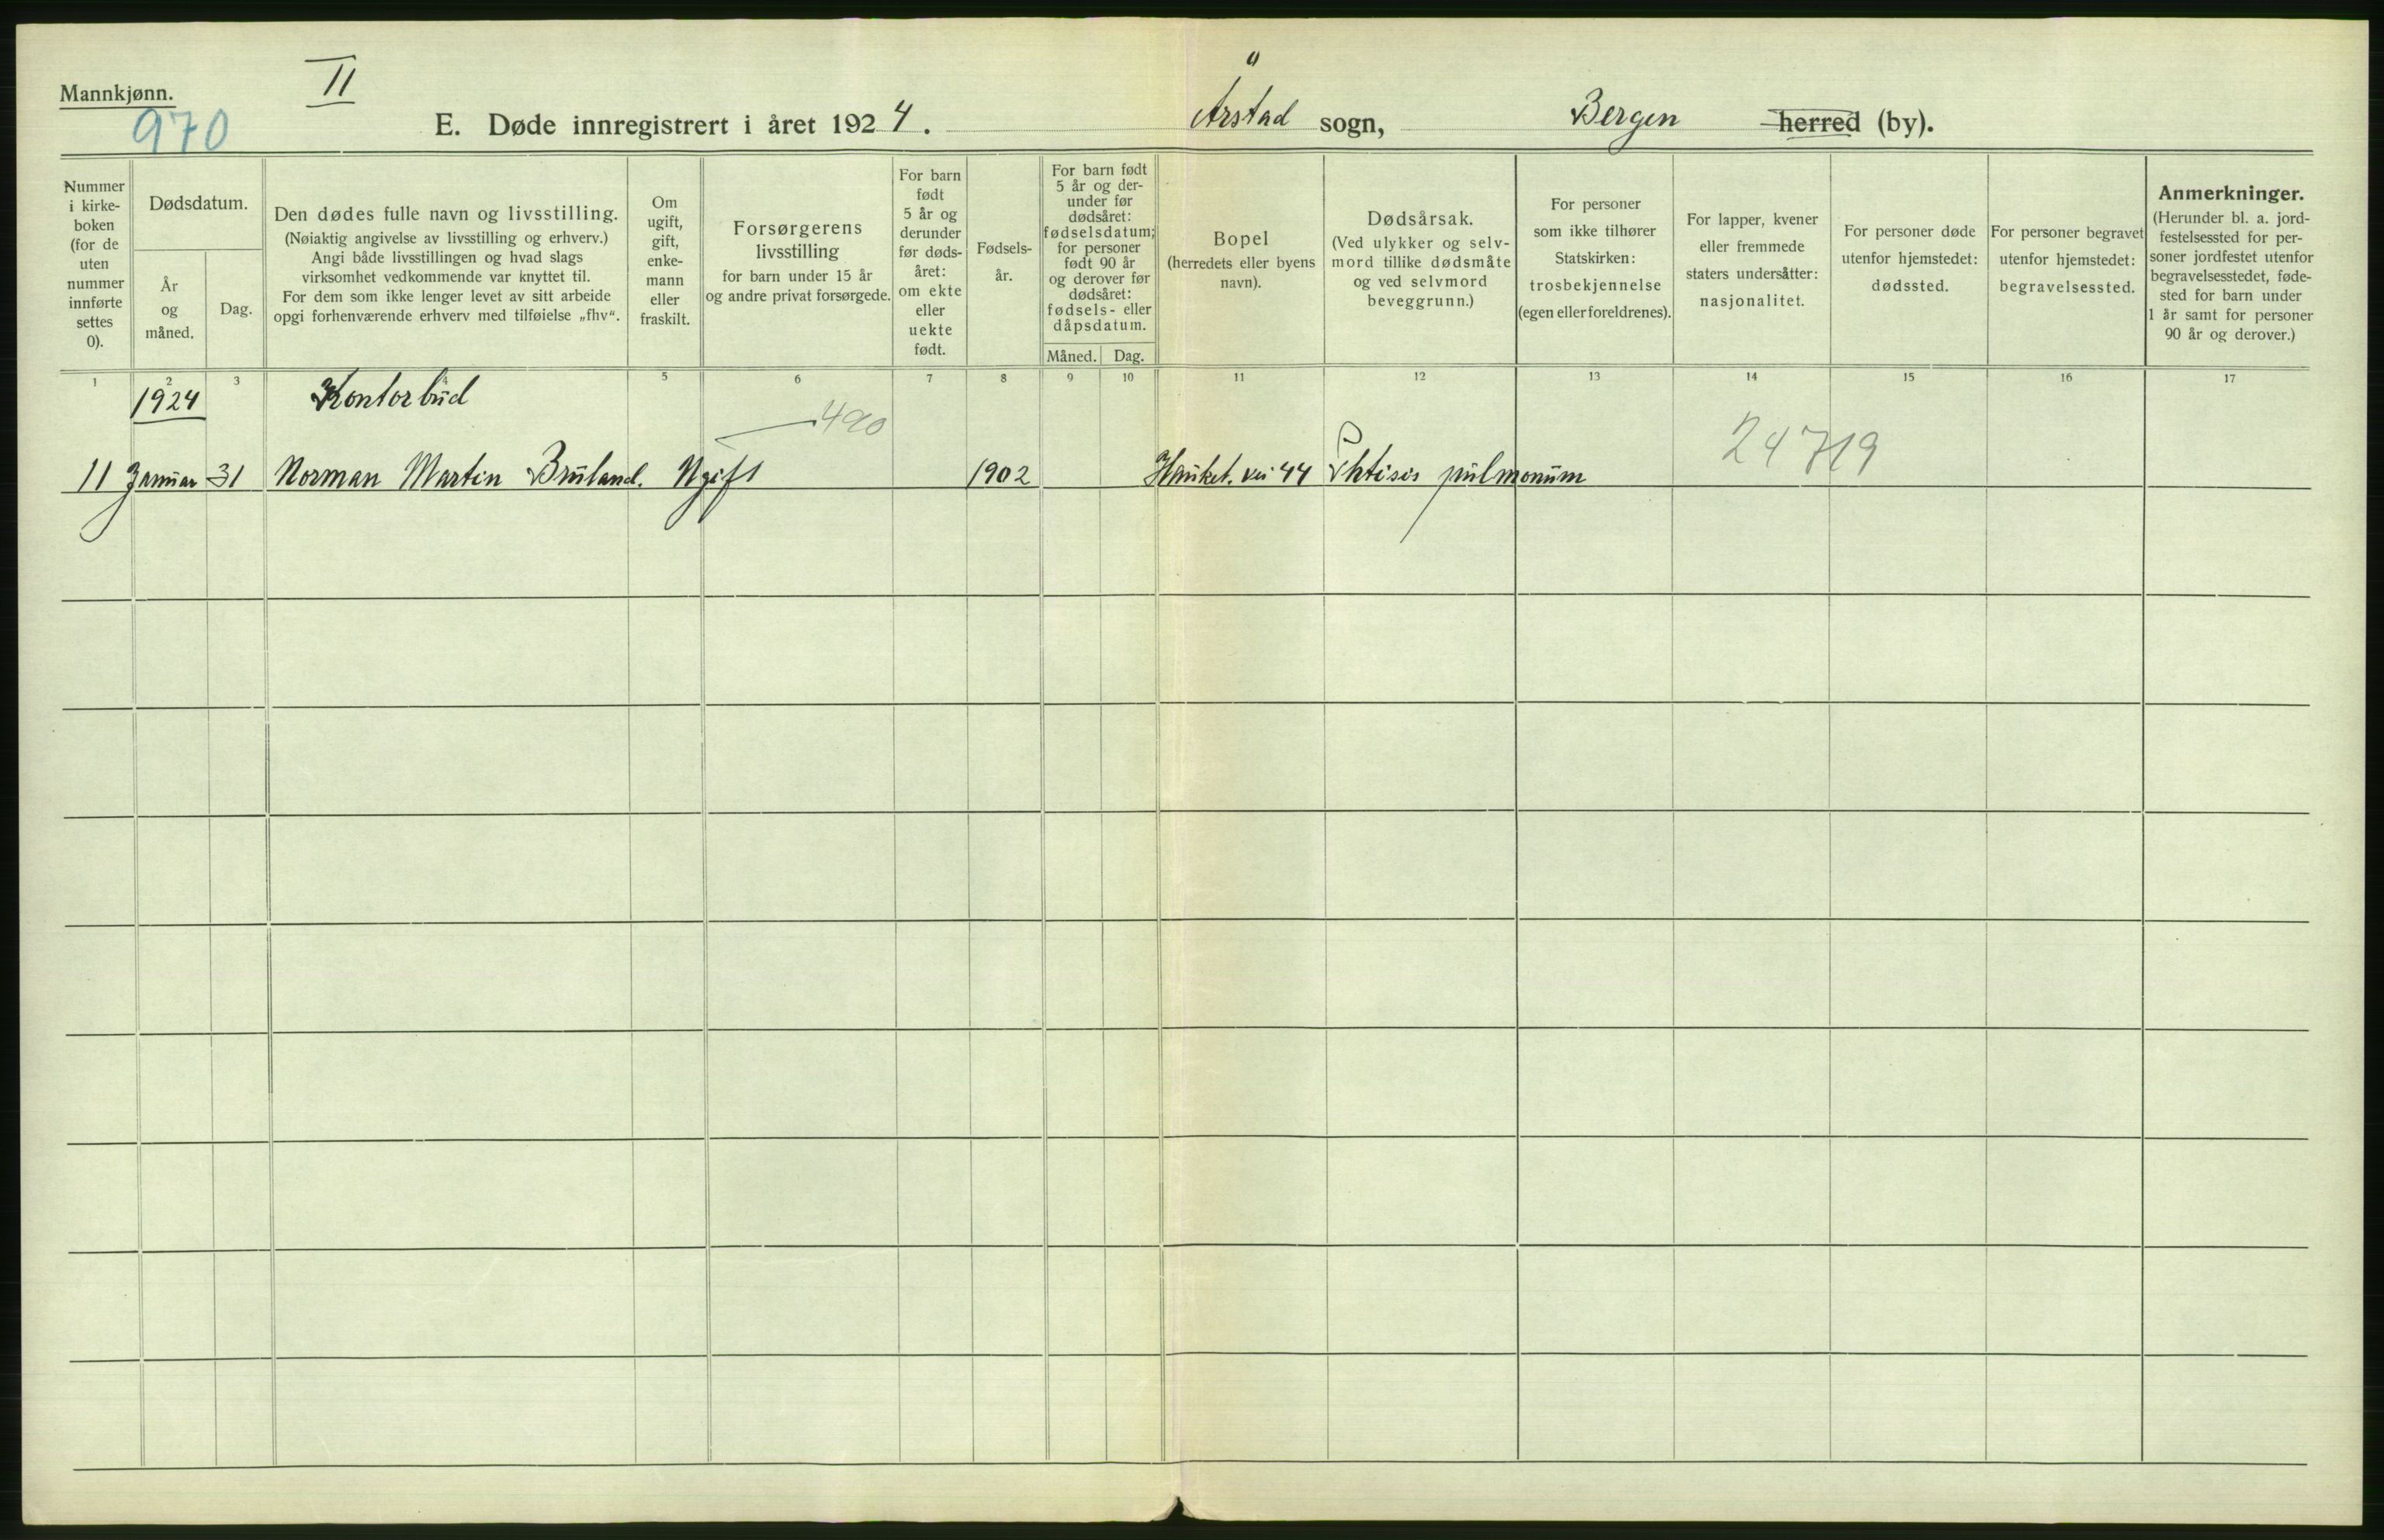 Mannkjønn.
II
970
E. Døde innregistrert i året 1924.
Årstad sogn,
Bergen herred (by).
Nummer
i kirke-
boken
(for de
uten
nummer
innførte
settes
0).
Dødsdatum.
År
og
måned.
Dag.
Den dødes fulle navn og livsstilling.
(Nøiaktig angivelse av livsstilling og erhverv.)
Angi både livsstillingen og hvad slags
virksomhet vedkommende var knyttet til.
For dem som ikke lenger levet av sitt arbeide
opgi forhenværende erhverv med tilføielse „fhv“.
Om
ugift,
gift,
enke-
mann
eller
fraskilt.
Forsørgerens
livsstilling
for barn under 15 år
og andre privat forsørgede.
For barn
født
5 år og
derunder
før døds-
året:
om ekte
eller
uekte
født.
Fødsels-
år.
For barn født
5 år og der-
under før
dødsåret:
fødselsdatum;
for personer
født 90 år
og derover før
dødsåret:
fødsels- eller
dåpsdatum.
Måned. Dag.
Bopel
(herredets eller byens
navn).
Dødsårsak.
(Ved ulykker og selv-
mord tillike dødsmåte
og ved selvmord
beveggrunn.)
For personer
som ikke tilhører
Statskirken:
trosbekjennelse
(egen eller foreldrenes).
For lapper, kvener
eller fremmede
staters undersåtter:
nasjonalitet.
For personer døde
utenfor hjemstedet:
dødssted.
For personer begravet
utenfor hjemstedet:
begravelsessted.
Anmerkninger.
(Herunder bl. a. jord-
festelsessted for per-
soner jordfestet utenfor
begravelsesstedet, føde-
sted for barn under
1 år samt for personer
90 år og derover.)
1 2 3 4 5 6 7 8 9 10 11 12 13 14 15 16 17
1924 Kontorbud
490
24719
11 Januar 31 Norman Martin Bruland. Ugift 1902 Hauket. vei 44 Phtisis pulmonum